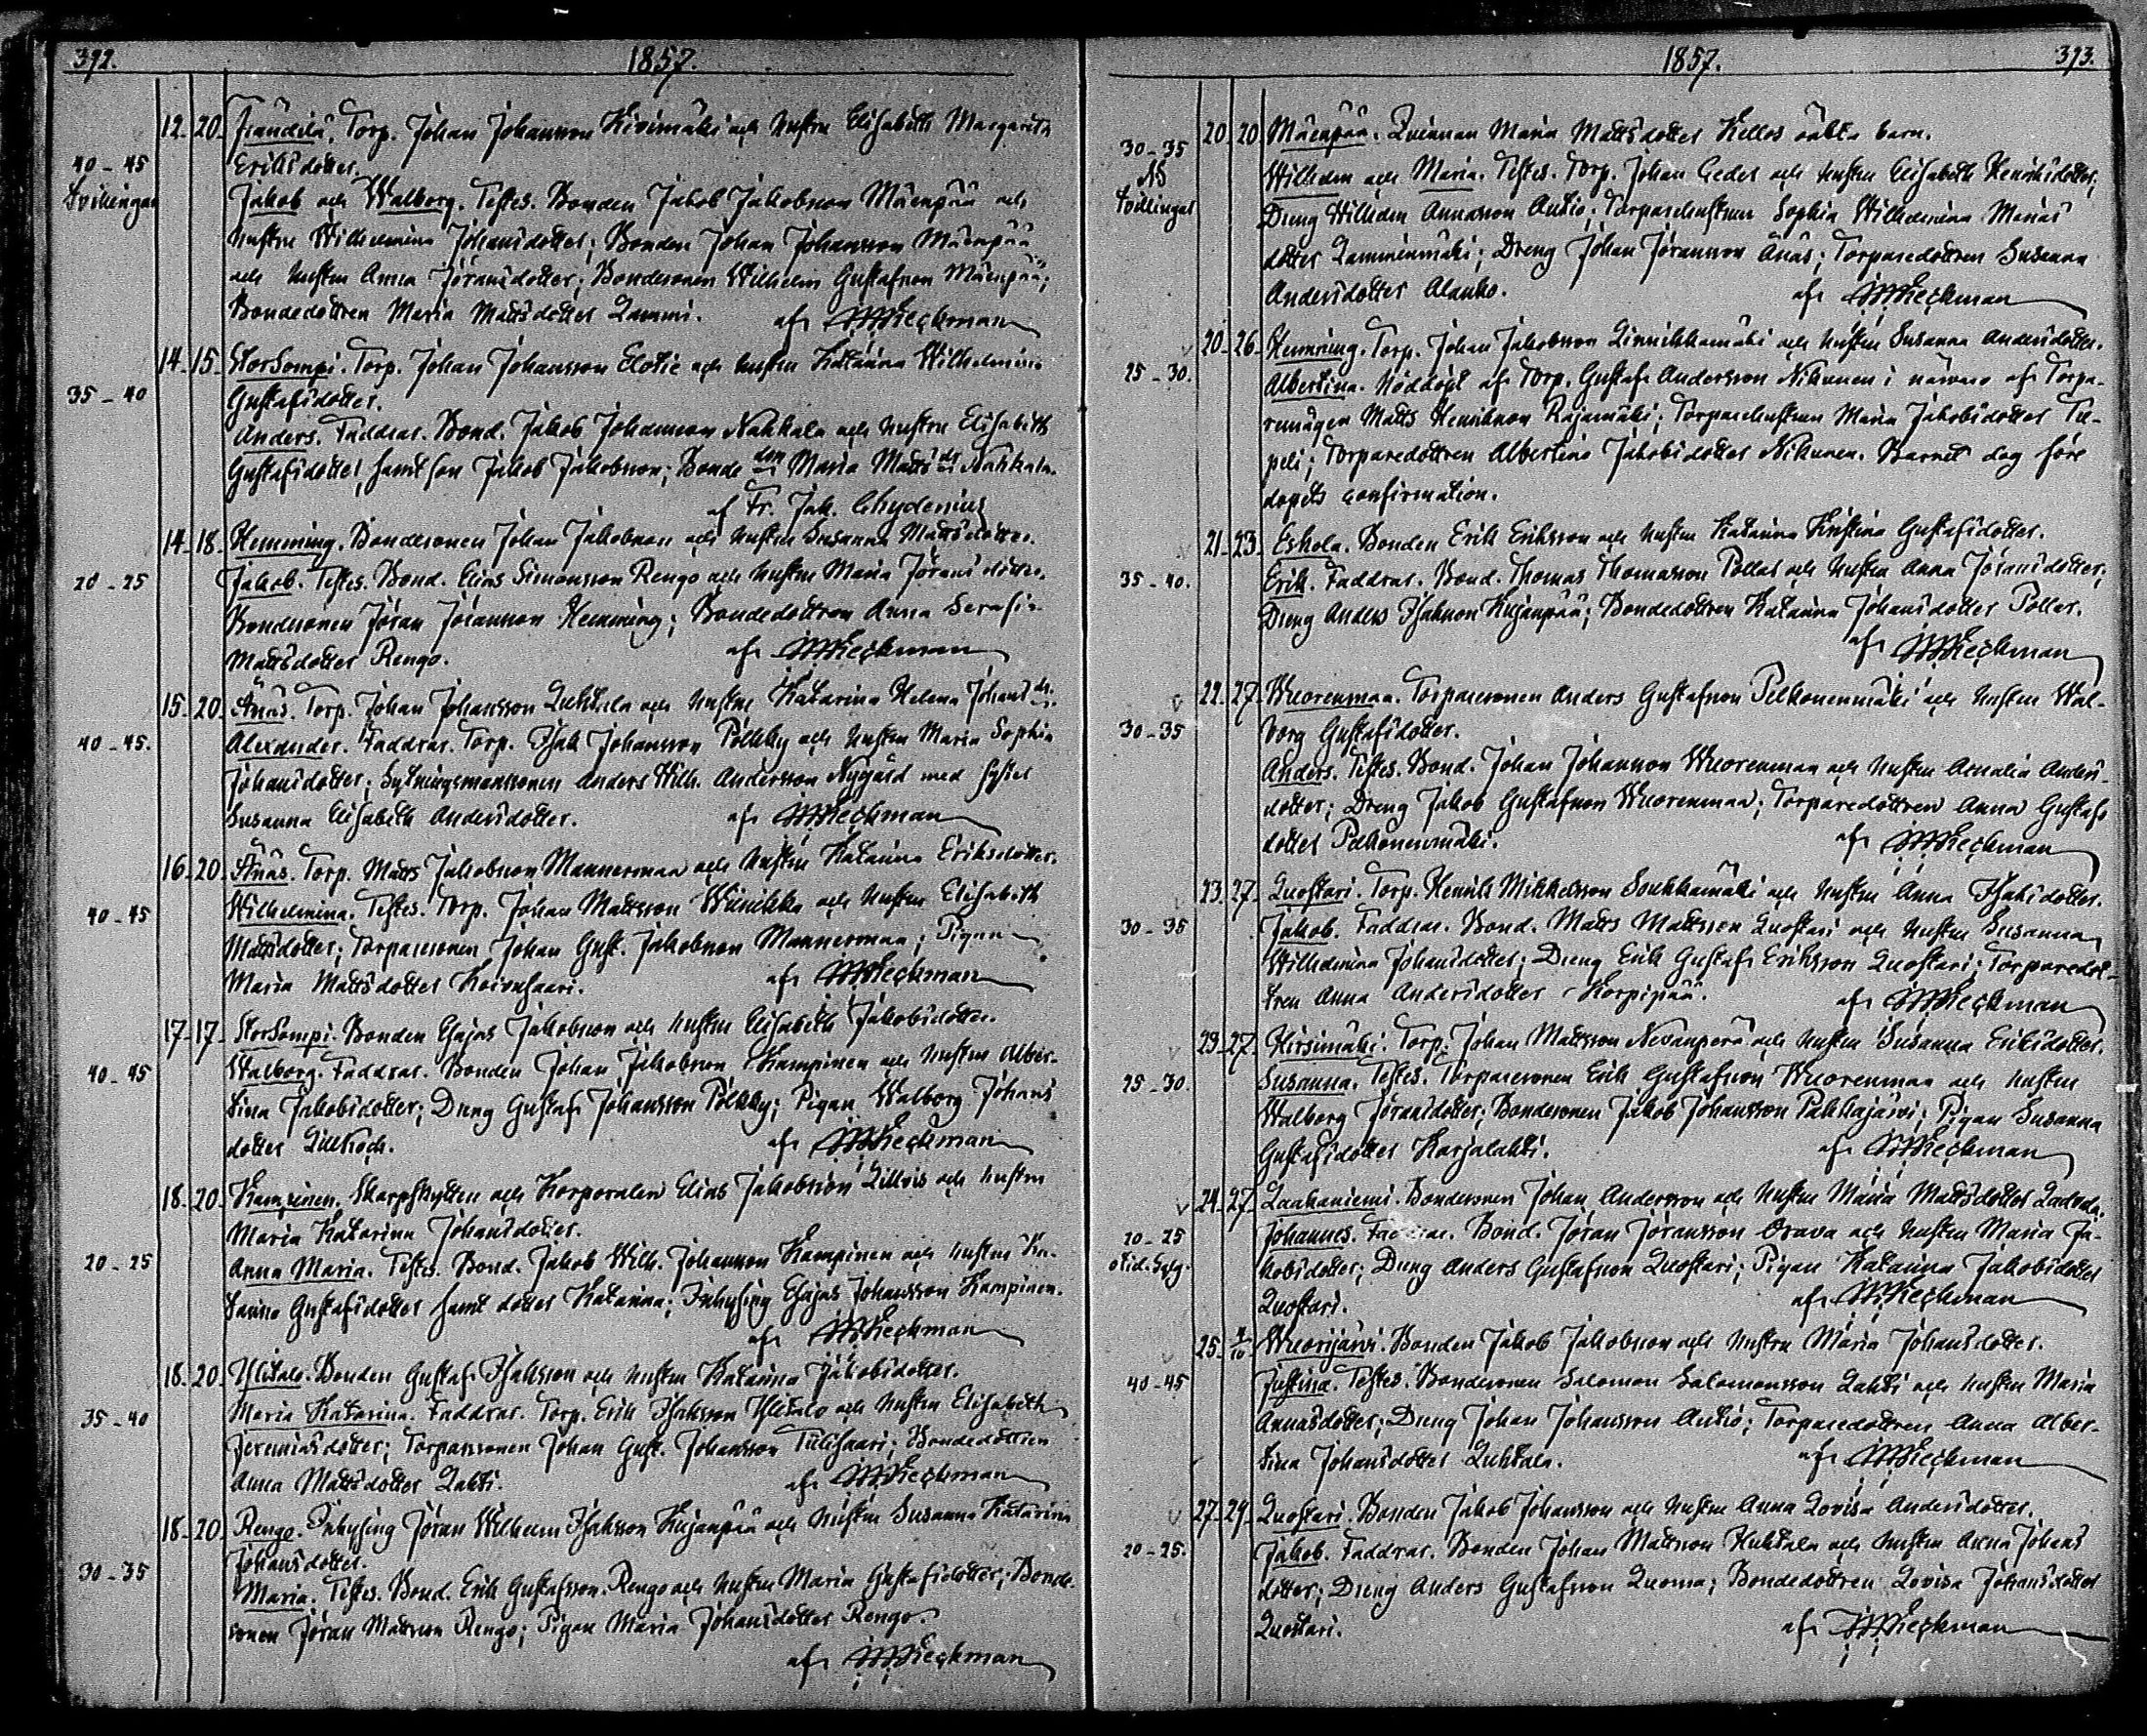 392.
1857.
12. 20. Frändilä. Torp. Johan Johansson Kivimäki och hustru Elisabeth Margareta
40-45
Eriksdotter.
Tvillingar
Jakob och Walborg. Testes. Bonden Jakob Jakobsson Mäenpää och
hustru Wilhelmina Johansdotter; Bonden Johan Johansson Mäenpää
och hustru Anna Jöransdotter; Bondesonen Wilhelm Gustafsson Mäenpää;
Bondedottren Maria Mattsdotter Lammi. af
14. 15. StorSompi. Torp. Johan Johansson och hustru Katarina Wilhelmina
35-40
Gustafsdotter.
Anders. Faddrar. Bond. Jakob Johansson Nahkala och hustru Elisabeth
Gustafsdotter, samt son Jakob Jakobsson; Bonde don Maria Mattsdr Nahkala.
af Fr. Jak. Chydenius
14. 18. Hemming. Bondesonen Johan Jakobsson och hustru Susanna Mattsdotter.
20-25
Jakob. Testes. Bond. Elias Simonsson Rengo och hustru Maria Jöransdotter.
Bondesonen Jöran Jöransson Hemming; Bondedottren Anna Serafia
Mattsdotter Rengo. af
15. 20. Änäs. Torp. Johan Johansson Luhtala och hustru Katarina Helena Johansdr.
40-45.
Alexander. Faddrar. Torp. Isak Johansson Pölkky och hustru Maria Sophia
Johansdotter; Sytningsmanssonen Anders Wilh. Andersson Nygård med syster
Susanna Elisabeth Andersdotter. af
16. 20. Änäs. Torp. Matts Jakobsson Mannermaa och hustru Katarina Eriksdotter.
40-45
Wilhelmina. Testes. Torp. Johan Mattsson Wiinikka och hustru Elisabeth
Mattsdotter; Torparesonen Johan Gust. Jakobsson Mannermaa; Pigan
Maria Mattsdotter Koivusaari. af
17. 17. StorSompi. Bonden Esajas Jakobsson och hustru Elisabeth Jakobsdotter.
40-45
Walborg. Faddrar. Bonden Johan Jakobsson Kampinen och hustru Alber-
tina Jakobsdotter; Dreng Gustaf Johansson Pölkky; Pigan Walborg Johans
dotter Lillkock. af
18. 20. Kampinen. Skarpskytten och Korporalen Elias Jakobsson och hustru
Maria Katarina Johansdotter.
20-25
Anna Maria. Testes. Bond. Jakob Wilh. Johansson Kampinen och hustru Ka-
tarina Gustafsdotter samt dotter Katarina; Inhysing Esajas Johansson Kampinen.
af
18. 20. Ylitalo. Bonden Gustaf Isaksson och hustru Katarina Jakobsdotter.
35-40
Maria Katarina. Faddrar. Torp. Erik Isaksson Ylitalo och hustru Elisabeth
Jeremiasdotter; Torparesonen Johan Gust. Johansson Tulisaari; Bondedottren
Anna Mattsdotter Lahti. af
18. 20. Rengo. Inhysing Jöran Wilhelm Isaksson Kujanpää och hustru Susanna Katarina
Johansdotter.
30-35
Maria. Testes. Bond. Erik Gustafsson Rengo och hustru Maria Gustafsdotter; Bonde-
sonen Jöran Mattsson Rengo; Pigan Maria Johansdotter Rengo.
af
1857.
393.
20. 20. Mäenpää. Quinnan Maria Mattsdotter Kellos oäkta barn.
30-35
Wilhelm och Maria. Testes. Torp. Johan Ceder och hustru Elisabeth Henriksdotter;
Tvillingar
Dreng Wilhelm Annasson Autio; Torparehustrun Sophia Wilhelmina Marias
dotter Lamminmäki; Dreng Johan Jöransson Änäs; Torparedottren Susanna
Andersdotter Alanko. af
20. 26. Hemming. Torp. Johan Jakobsson Linnikkamäki och hustru Susanna Andersdotter.
25-30.
Albertina. Nöddöpt af Torp. Gustaf Andersson Nikunen i närvaro af Torpa-
remågen Matts Henriksson Rajamäki; Torparehustrun Maria Jakobsdotter Tu-
peli; Torparedottren Albertina Jakobsdotter Nikunen. Barnet dog före
dopets confirmation.
21. 23. Eskola. Bonden Erik Eriksson och hustru Katarina Kristina Gustafsdotter.
35-40.
Erik. Faddrar. Bond. Thomas Thomasson Pollas och hustru Anna Jöransdotter;
Dreng Anders Isaksson Kujanpää; Bondedottren Katarina Johansdotter Poller.
af
22. 27. Wuorenmaa. Torparesonen Anders Gustafsson Pelkonenmäki och hustru Wal-
30-35
borg Gustafsdotter.
Anders. Testes. Bond. Johan Johansson Wuorenmaa och hustru Amalia Anders-
dotter; Dreng Jakob Gustafsson Wuorenmaa; Torparedottren Anna Gustafs
dotter Pelkonenmäki. af
23. 27. Luostari. Torp. Henrik Mikkelsson Soukkamäki och hustru Anna Isaksdotter.
30-35
Jakob. Faddrar. Bond. Matts Mattsson Luostari och hustru Susanna
Wilhelmina Johansdotter; Dreng Erik Gustaf Eriksson Luostari; Torparedot-
tren Anna Andersdotter Korpipää. af
23. 27. Hirsimäki. Torp. Johan Mattsson Nevanperä och hustru Susanna Eriksdotter.
25-30.
Susanna. Testes. Torparesonen Erik Gustafsson Wuorenmaa och hustru
Walborg Jöransdotter; Bondesonen Jakob Johansson Patkajärvi; Pigan Susanna
Gustafsdotter Karjalahti. af
24. 27. Laakaniemi. Bondesonen Johan Andersson och hustru Maria Mattsdotter
20-25
Johannes. Faddrar. Bond. Jöran Jöransson Orava och hustru Maria Ja-
kobsdotter; Dreng Anders Gustafsson Luostari; Pigan Katarina Jakobsdotter
Luostari. af
25. 4/10 Wuorijärvi. Bonden Jakob Jakobsson och hustru Maria Johansdotter.
40-45
Justina. Testes. Bondesonen Salomon Salomonsson Lahti och hustru Maria
Annasdotter; Dreng Johan Johansson Autio; Torparedottren Anna Alber-
tina Johansdotter Luhtala. af
27. 29. Luostari. Bonden Jakob Johansson och hustru Anna Lovisa Andersdotter.
20-25.
Jakob. Faddrar. Bonden Johan Mattsson Huhtala och hustru Anna Johans
dotter; Dreng Anders Gustafsson Luoma; Bondedottren Lovisa Johansdotter
Luostari. af